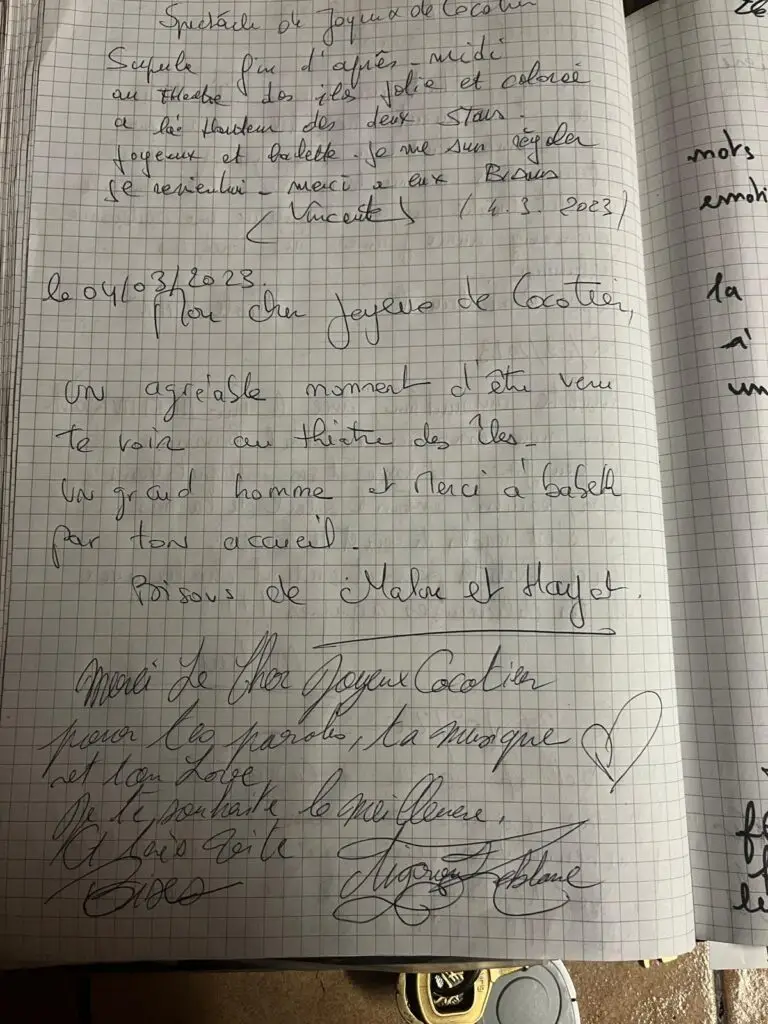 Spectacle de Joyeux de Cocotier
Superbe fin d'après-midi
au theatre des iles jolie et colorée
a la Hauteur des deux stars.
Joyeux et babette. Je me suis régaler
je reviendrai - merci a eux Bisous
(Vincente) (4.3.2023)
le 04/03/2023.
Mon cher Joyeux de Cocotier,
Un agréable moment d'être venu
te voir au théatre des îles.
Un grand homme et Merci à babeth
par ton accueil.
Bisous de Malou et Hayet.
Merci Le Cher Joyeux Cocotier
pour tes paroles, ta musique
et ton Love,
Je te souhaite le meilleure.
A très vite
Bises Leblanc
26
mots
emoti
la
à
un